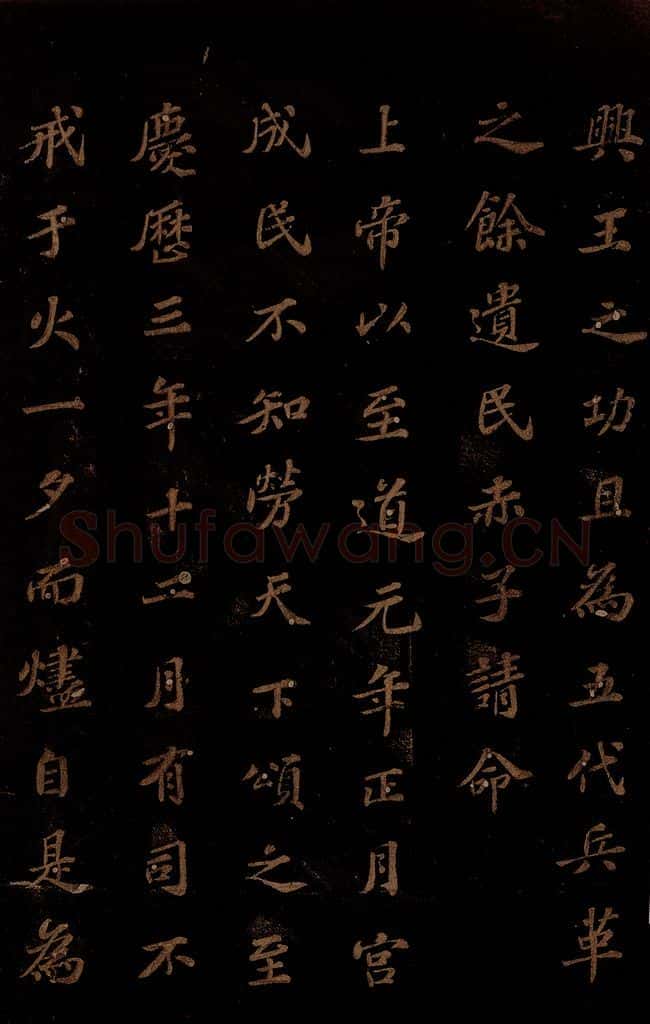 興王之功且為五代兵革
之餘遺民赤子請命
上帝以至道元年正月宮
成民不知勞天下頌之至
慶歷三年十二月有司不
戒于火一夕而燼自是為
Shufawang.CN